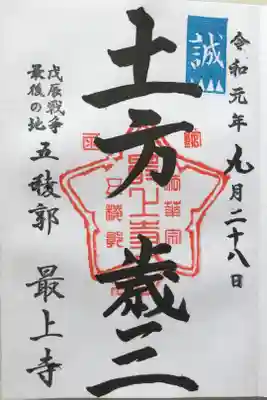 令和元年九月二十八日
誠
土方歳三
戊辰戦争
最後の地
五稜郭 最上寺